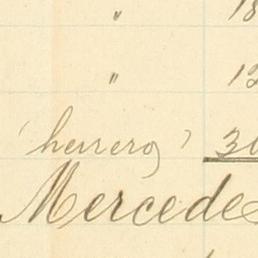 " 18
" 12
(herrero) 30
Mercedes